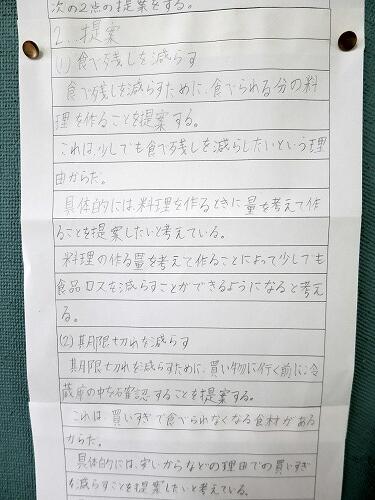 次の2点の提案をする。
2.提案
(1)食べ残しを減らす
食べ残しを減らすために、食べられる分の料
理を作ることを提案する。
これは、少しでも食べ残しを減らしたいという理
由からだ。
具体的には、料理を作るときに量を考えて作
ることを提案したいと考えている。
料理の作る量を考えて作ることによって少しでも
食品ロスを減らすことができるようになると考え
る。
(2)期限切れを減らす
期限切れを減らすために、買い物に行く前に、冷
蔵庫の中を確認することを提案する。
これは、買いすぎで食べられなくなる食材がある
からだ。
具体的には、安いからなどの理由での買いすぎ
を減らすことを提案したいと考えている。